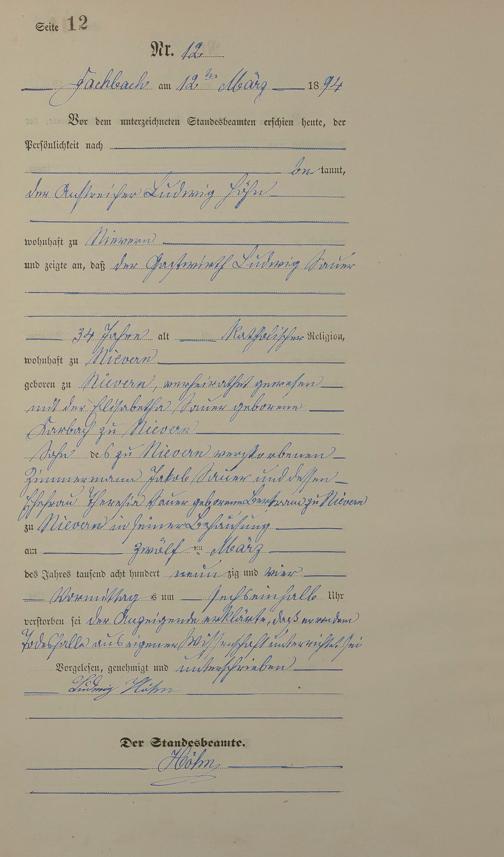 Seite 12
Nr. 12
Fachbach am 12ten März 1894
Vor dem unterzeichneten Standesbeamten erschien heute, der
Persönlichkeit nach
be kannt,
der Anstreicher Ludwig Höhn
wohnhaft zu Nievern
und zeigte an, daß der Gastwirth Ludwig Sauer
34 Jahre alt katholischer Religion,
wohnhaft zu Nievern
geboren zu Nievern, verheirathet gewesen
mit der Elisabetha Sauer geborene
Karbach zu Nievern
Sohn des zu Nievern verstorbenen
Zimmermann Jakob Sauer und dessen
Ehefrau Theresia Sauer geborene Bertram zu Nievern
zu Nievern in seiner Behausung
am zwölften März
des Jahres tausend acht hundert neun zig und vier
Vormittags um sechseinhalb Uhr
verstorben sei der Anzeigende erklärte, daß er von dem
Todesfalle aus eigener Wissenschaft unterrichtet sei
Vorgelesen, genehmigt und unterschrieben
Ludwig Höhn
Der Standesbeamte.
Höhn